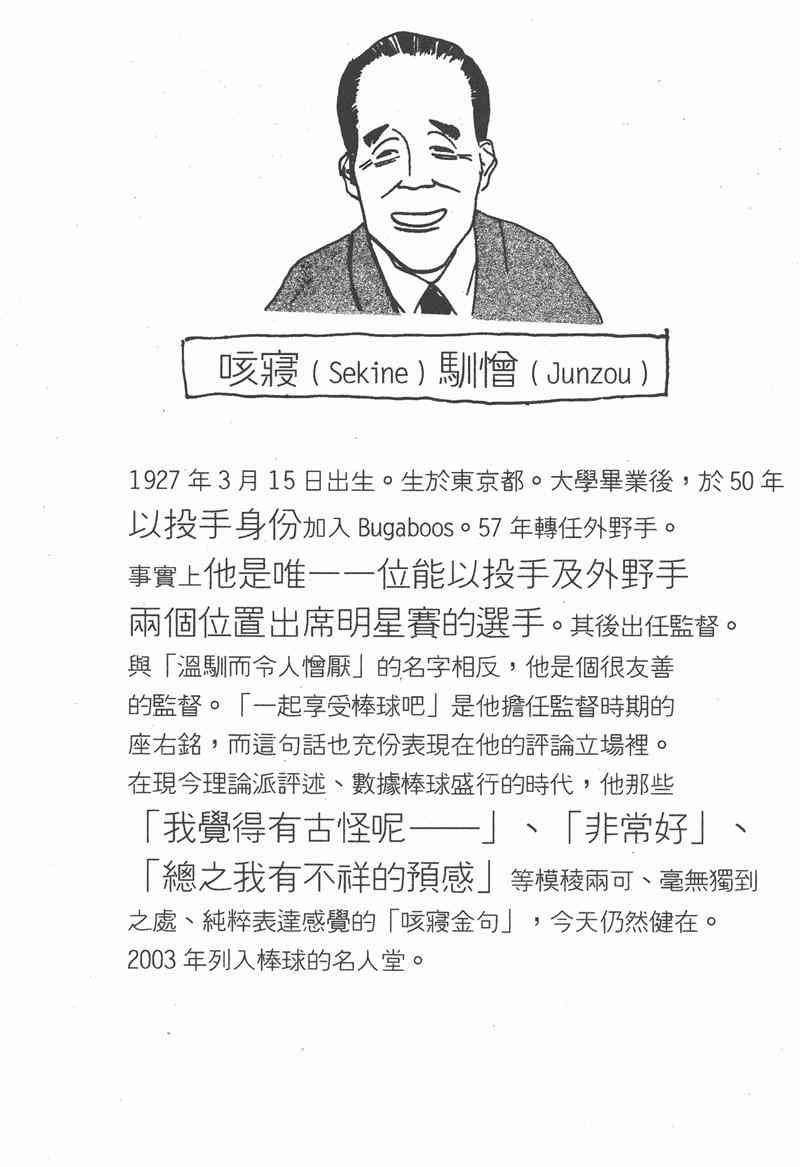 咳寢（Sekine）馴憎（Junzou）
1927 年 3 月 15 日出生。生於東京都。大學畢業後，於 50 年
以投手身份加入 Bugaboos。57 年轉任外野手。
事實上他是唯一一位能以投手及外野手
兩個位置出席明星賽的選手。其後出任監督。
與「溫馴而令人憎厭」的名字相反，他是個很友善
的監督。「一起享受棒球吧」是他擔任監督時期的
座右銘，而這句話也充份表現在他的評論立場裡。
在現今理論派評述、數據棒球盛行的時代，他那些
「我覺得有古怪呢——」、「非常好」、
「總之我有不祥的預感」等模稜兩可、毫無獨到
之處、純粹表達感覺的「咳寢金句」，今天仍然健在。
2003 年列入棒球的名人堂。